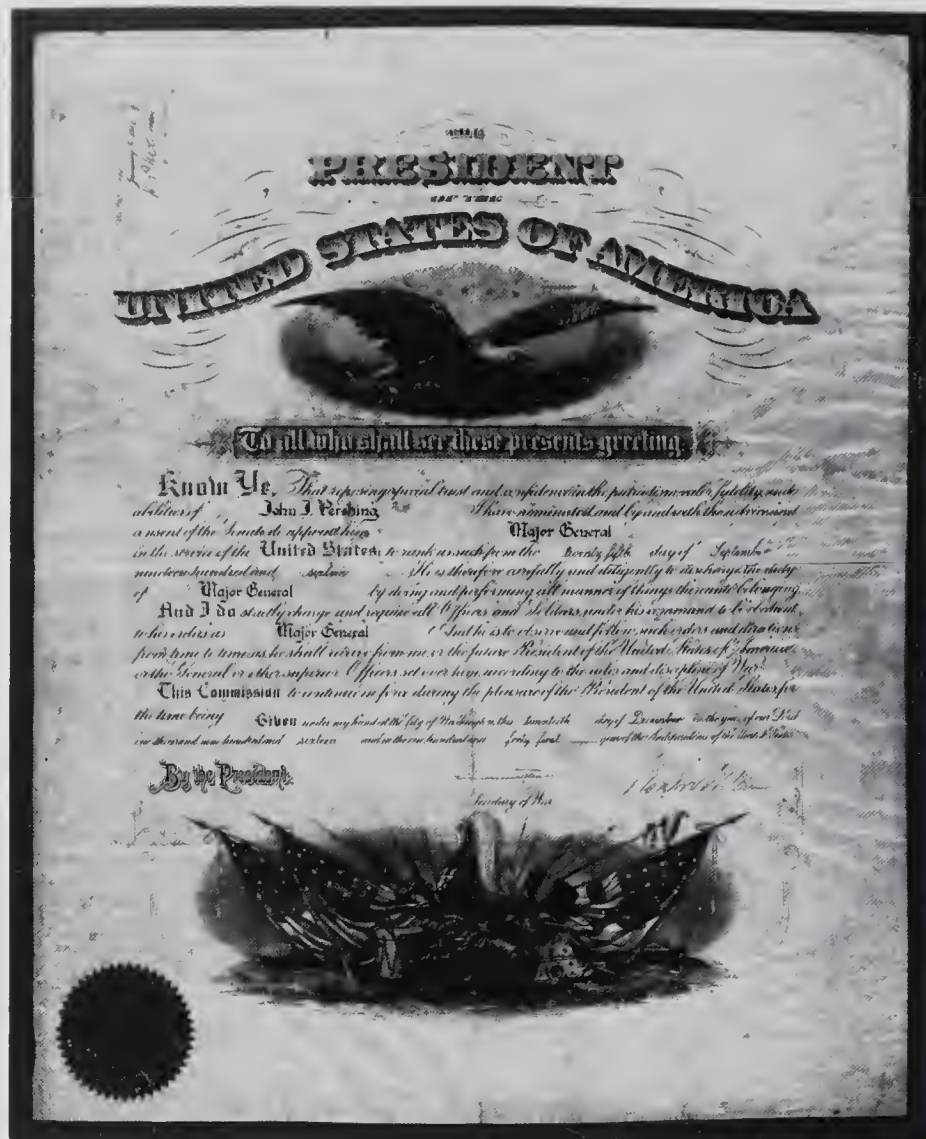 THE
PRESIDENT
OF THE
UNITED STATES OF AMERICA
To all who shall see these presents greeting.
Know Ye, That reposing special trust and confidence in the patriotism valor fidelity and
abilities of John J. Pershing I have nominated and by and with the advice and
consent of the Senate do appoint him Major General
in the service of the United States; to rank as such from the twenty fifth day of September
nineteen hundred and sixteen He is therefore carefully and diligently to discharge the duty
of Major General by doing and performing all manner of things thereunto belonging.
And I do strictly charge and require all Officers and Soldiers under his command to be obedient
to his orders as Major General And he is to observe and follow such orders and directions
from time to time as he shall receive from me, or the future President of the United States of America
or the General or other superior Officers set over him, according to the rules and discipline of War.
This Commission to continue in force during the pleasure of the President of the United States for
the time being Given under my hand at the City of Washington this twentieth day of December in the year of our Lord
one thousand nine hundred and sixteen and in the one hundred and forty first year of the Independence of the United States
By the President.
Secretary of War